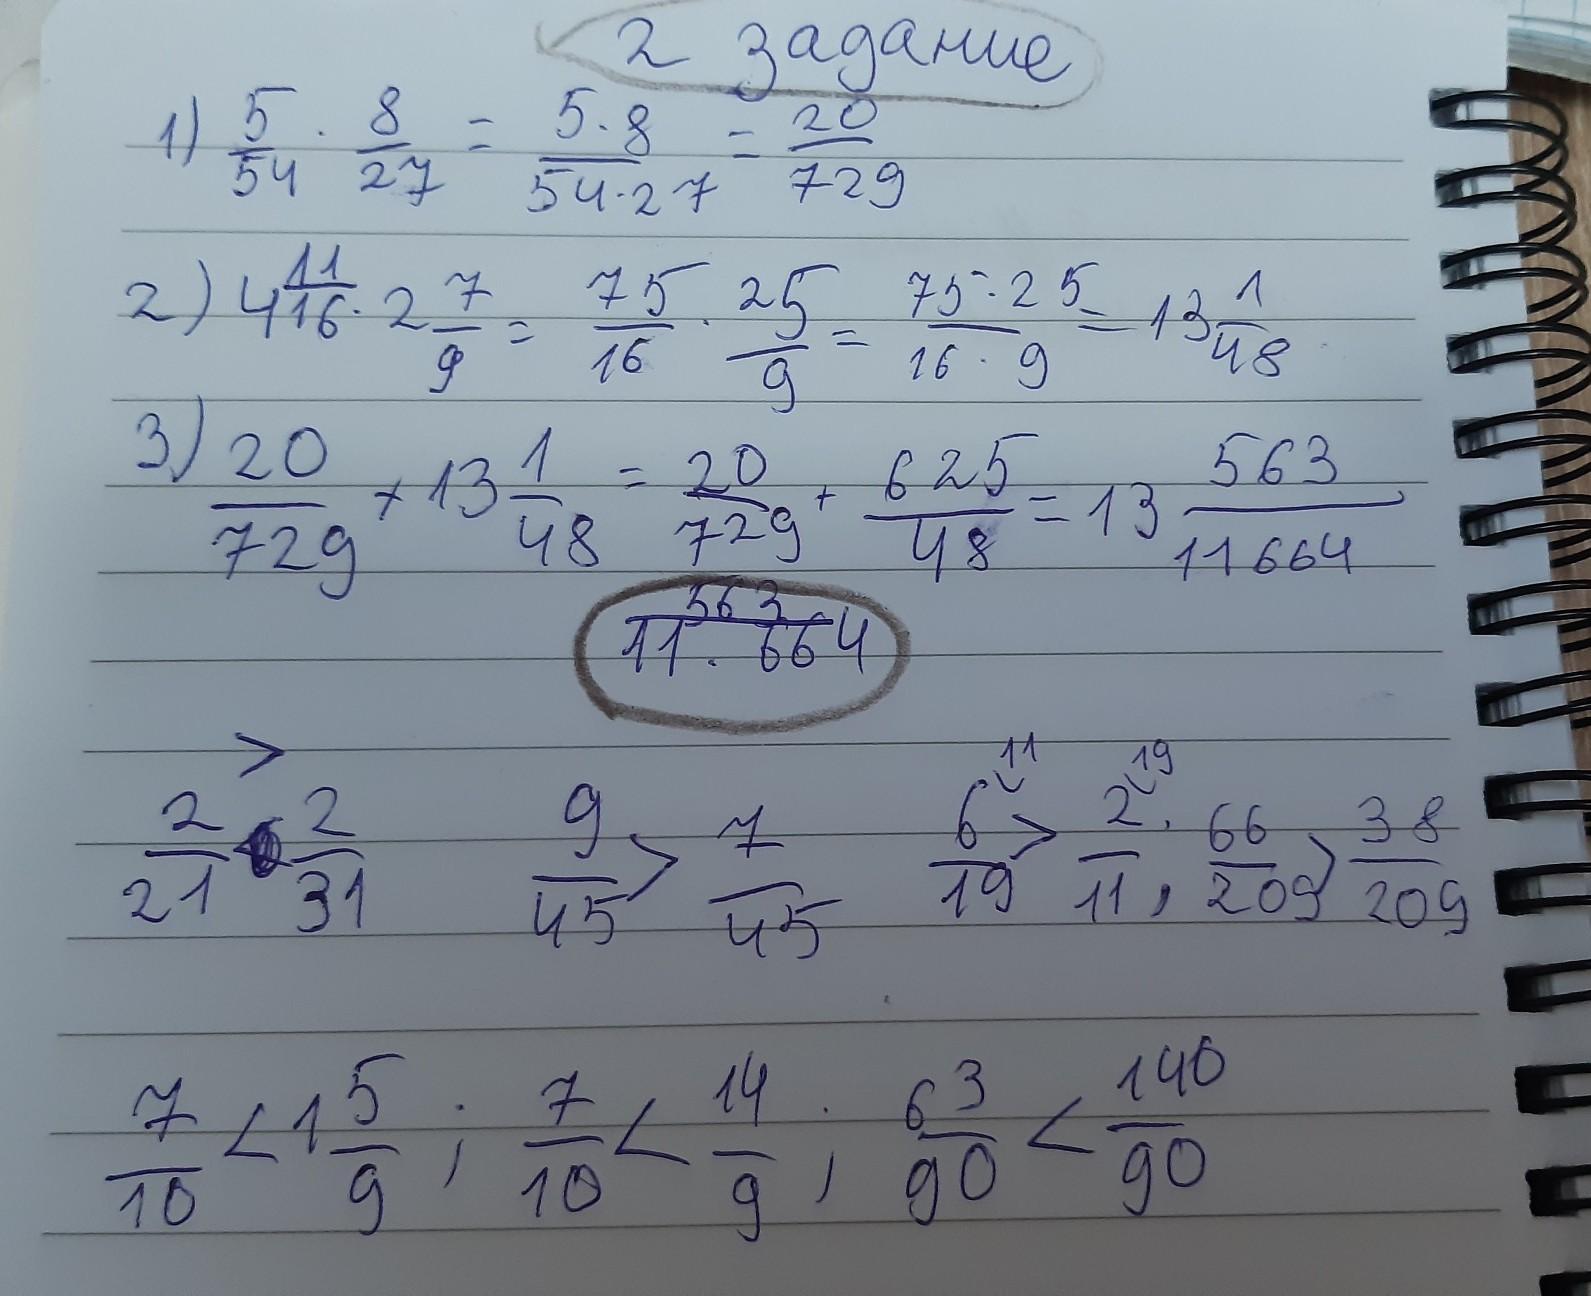 2 задание
1) 5/54 · 8/27 = 5·8/54·27 = 20/729
2) 4 11/16 · 2 7/9 = 75/16 · 25/9 = 75·25/16·9 = 13 1/48
3) 20/729 + 13 1/48 = 20/729 + 625/48 = 13 563/11664
563/11.664
2/21 > 2/31 9/45 > 7/45 6/19 ˇ11 > 2/11 ˇ19, 66/209 > 38/209
7/10 < 1 5/9 ; 7/10 < 14/9 ; 63/90 < 140/90